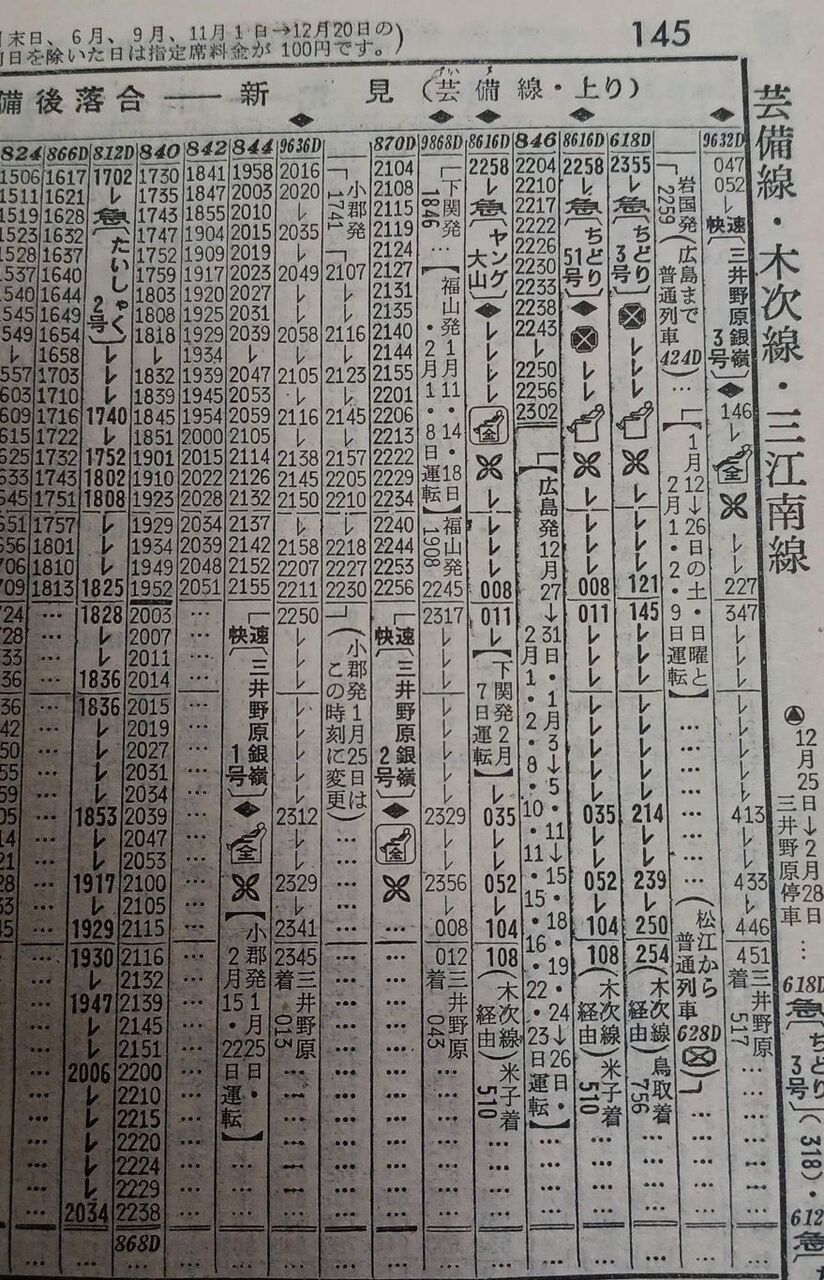 月末日、6月、9月、11月1日→12月20日の
日を除いた日は指定席料金が100円です。)
145
備後落合――新見(芸備線・上り)
げいび
芸備線・木次線・三江南線
824 866D 812D 840 842 844 9636D 870D 9868D 8616D 846 8616D 618D 9632D
1506 1511 1519 1523 1528
1617 1621 1628 1632 1637 1640 1644 1649 1654 1658 1703 1710 1716 1722 1732 1743 1751 1757 1801 1810 1813 …
1702 レ 急〔たいしゃく2号〕レ レ 1740 レ 1752 1802 1808 レ レ レ 1825 1828 レ レ 1836 1836 レ レ レ レ 1853 レ レ 1917 レ 1929 1930 レ 1947 レ レ 2006 レ レ レ レ レ 2034
1730 1735 1743 1747 1752 1759 1803 1808 1818 レ 1832 1839 1845 1851 1901 1910 1923 1929 1934 1949 1952 2003 2007 2011 2014 2015 2019 2027 2031 2034 2039 2047 2053 2100 2105 2115 2116 2132 2139 2145 2151 2200 2210 2215 2220 2224 2229 2238 868D
1841 1847 1855 1904 1909 1917 1920 1925 1929 1934 1939 1945 1954 2000 2015 2022 2028 2034 2039 2048 2051 …
1958 2003 2010 2015 2019 2023 2027 2031 2039 レ 2047 2053 2059 2105 2114 2126 2132 2137 2142 2152 2155
快速〔三井野原銀嶺1号〕全
【小郡発1月25日・2月15・22日運転】
2016 2020 レ 2035 レ 2049 レ レ 2058 レ 2105 レ 2116 レ 2138 2145 2150 レ 2158 2207 2211 2250 レ 2312 レ レ 2329 レ 2341 2345 着 三井野原 013
「小郡発 1741 2107 レ レ 2116 レ 2123 レ 2145 レ 2157 2205 2210 レ 2218 2227 2230」
(小郡発1月25日はこの時刻に変更)
2104 2108 2115 2119 2124 2127 2131 2135 2140 2144 2155 2201 2206 2213 2222 2229 2234 2240 2244 2253 2256
快速〔三井野原銀嶺2号〕全
「下関発 1846…【福山発1月11・14・18日・2月1・8日運転】福山発 1908 2245 2317 レ 2329 レ レ 2356 レ 008 012 着 三井野原 043
2258 レ 急〔ヤング大山〕レ 全 レ 008 011 レ【下関発2月7日運転】レ 035 レ レ 052 レ 104 108(木次線経由)米子着 510
2204 2210 2217 2222 2226 2230 2233 2238 2243 レ 2250 2256 2302
【広島発12月27→31日・1月3→5・10・11・15・18・19・24→26日・2月1・2・8・11・15・16・22・23日運転】
2258 レ 急〔ちどり51号〕レ 008 011 レ 035 レ レ 052 レ 104 108(木次線経由)米子着 510
2355 レ 急〔ちどり3号〕レ 121 145 レ 214 レ レ 239 レ 250 254(木次線経由)鳥取着 756
「岩国発 2259(広島まで普通列車424D)…「【1月12→26日の土・日曜と2月1・2・9日運転】…(松江から普通列車628D)」
047 052 レ 快速〔三井野原銀嶺3号〕146 レ 全 レ 227 347 レ 413 レ レ 433 レ 446 451 着 三井野原 517
12月25日→2月28日三井野原停車…
618D 急〔ちどり3号〕(318)・
612 急